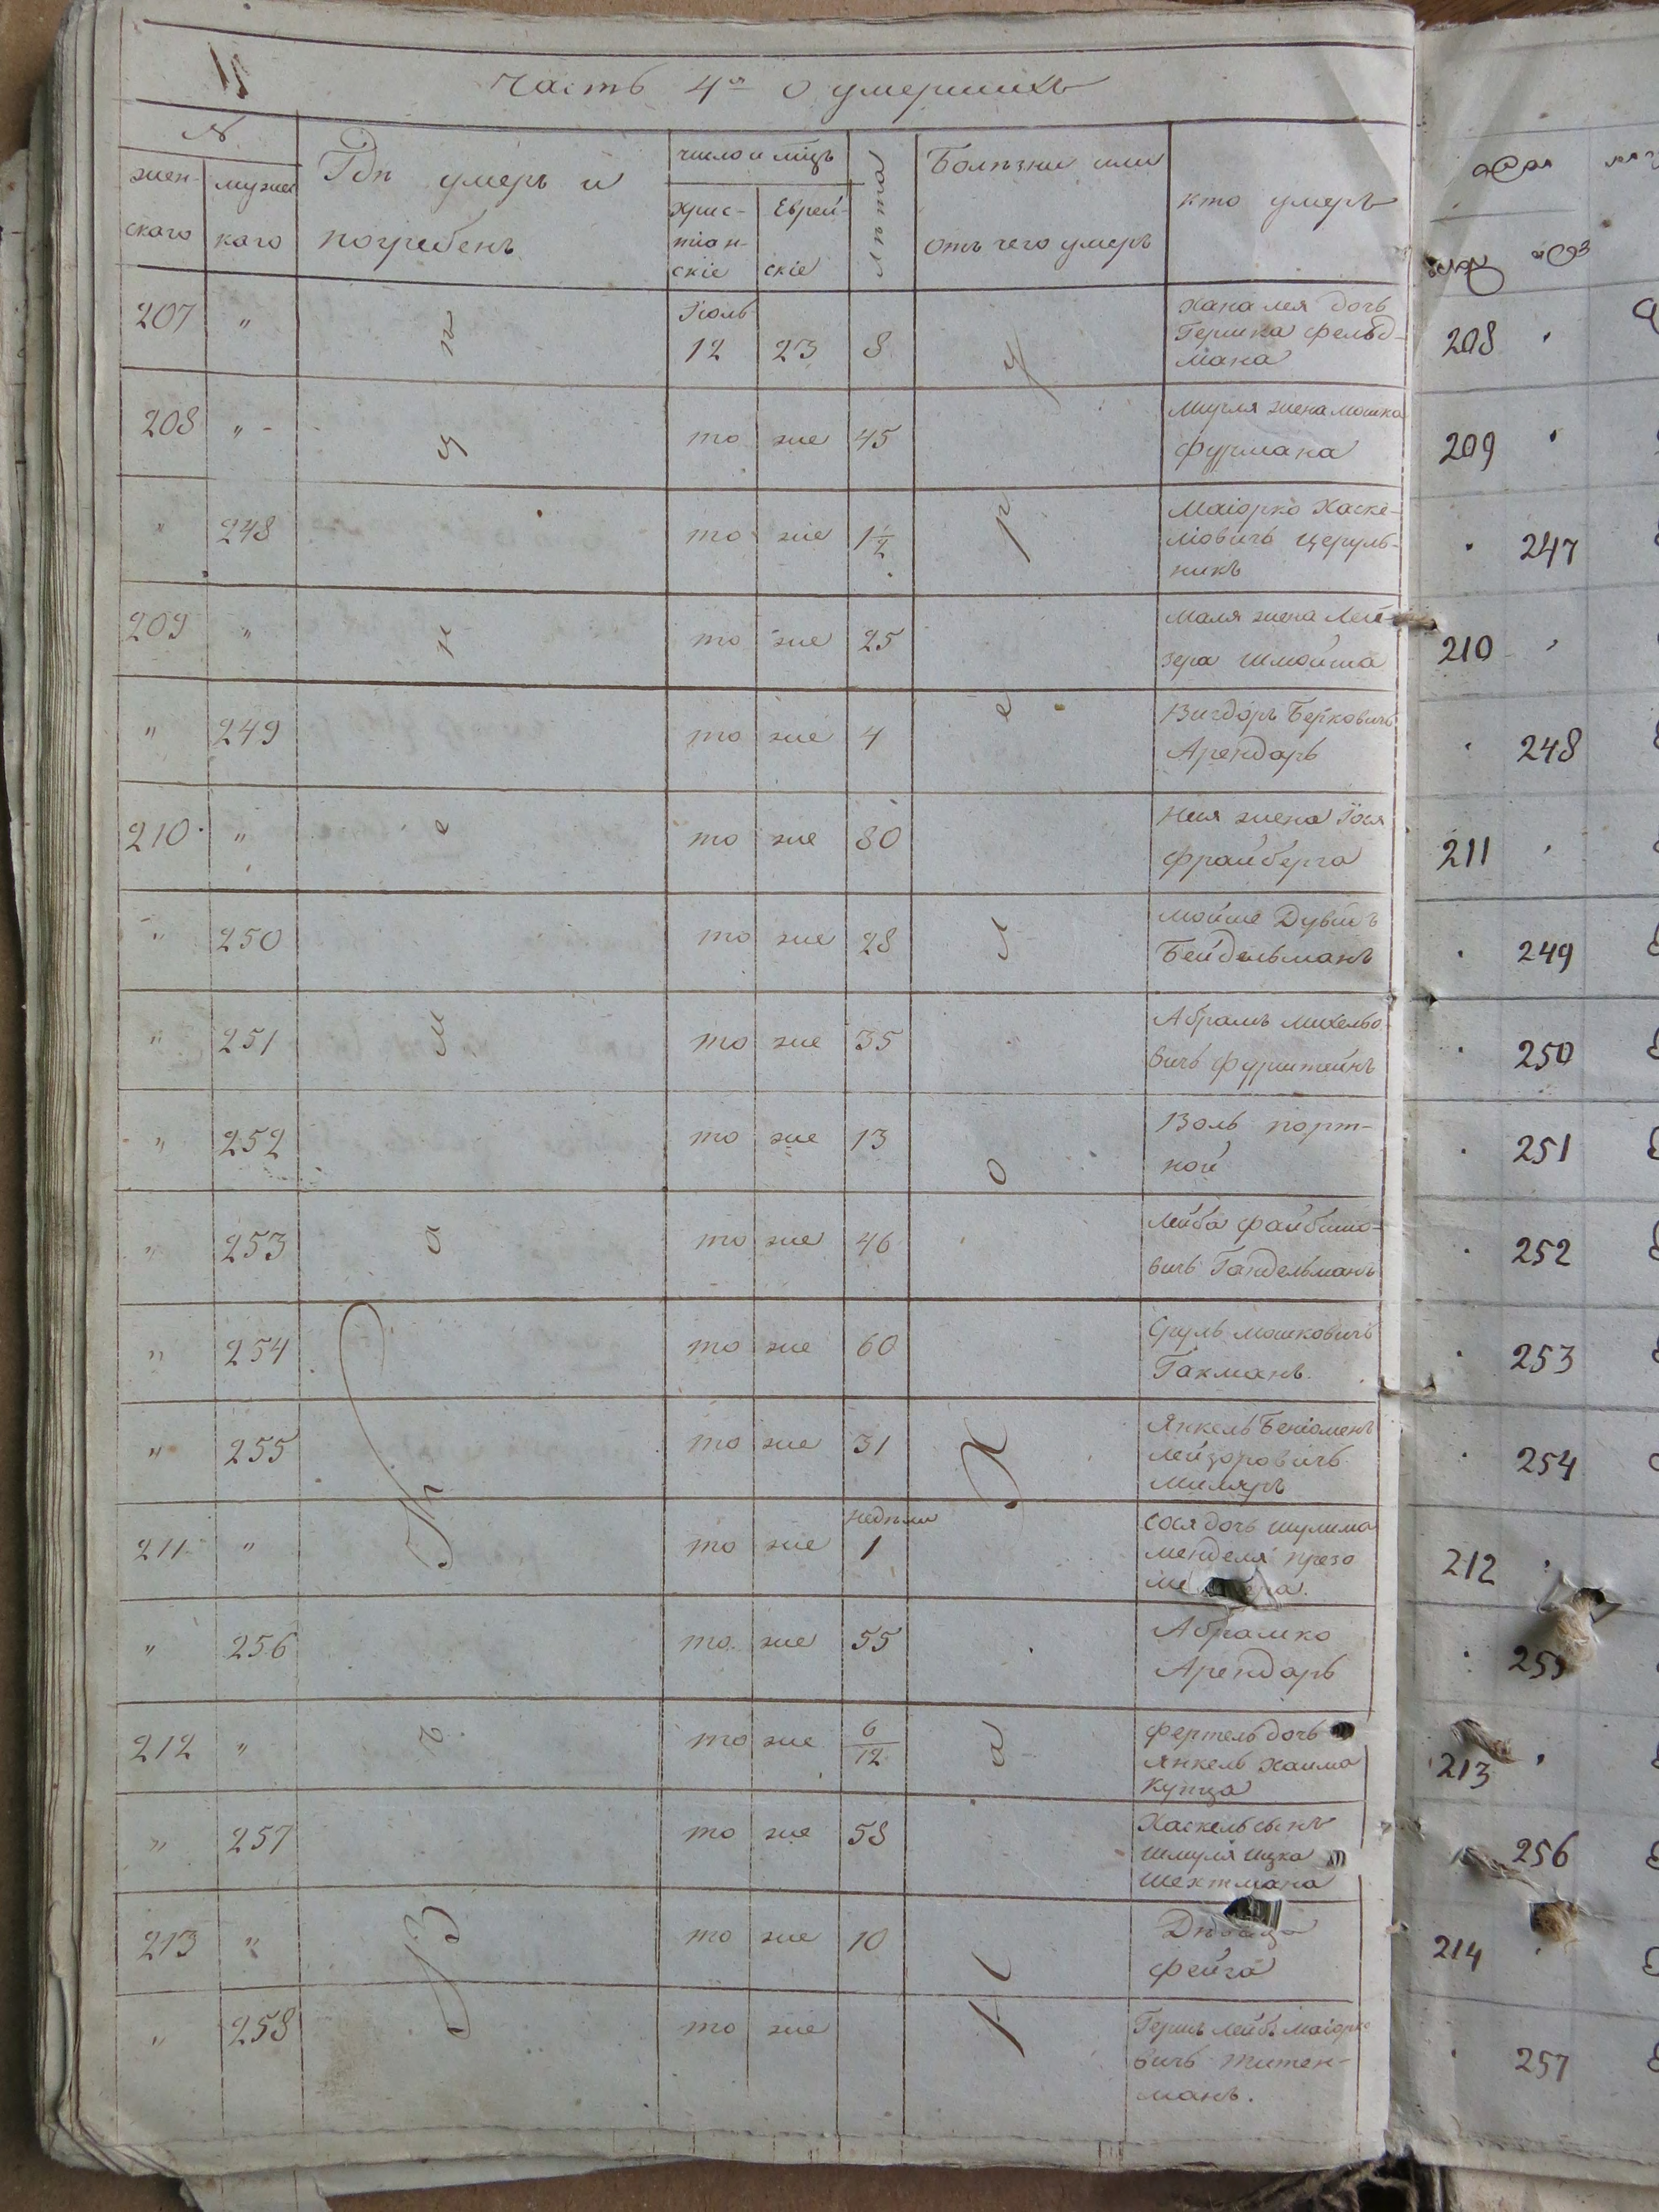 Часть 4я о умершихъ
№
женскаго
мужескаго
Гдѣ умеръ и
погребенъ
число и мѣць
хрис-
тіан-
скіе
Еврей-
скіе
лѣта
Болѣзни или
отъ чего умеръ
кто умеръ
207 " Іюль 12 23 8 Хана лея дочь
Гершка фельд-
мана
208 " то же 45 жена мошка
фурмана
" 248 то же 1 1/2 Маіорко Хаске-
ліовичъ Церуль-
никъ
209 " то же 25 Маля жена Лей-
зера Шмойша
" 249 то же 4 Вигдоръ Берковичъ
Арендарь
210 " то же 80 жена Іося
фрайберга
" 250 то же 28 Мойше Дувидъ
Бейдельманъ
" 251 то же 35 Абрамъ Михельо-
вичъ фурштейнъ
" 252 то же 13 Воль порт-
ной
" 253 то же 46 Лейба файбишо-
вичъ Гандельманъ
" 254 то же 60 Сруль мошковичъ
Гакманъ.
" 255 то же 31 Янкель Беніоменъ
лейзоровичъ
миляръ
211 " то же недѣли 1 Сося дочь шулима
менделя
256 " то же 55 Абрамко
Арендарь
212 " то же 6/12 фертель дочь
янкель хаима
купца
" 257 то же 58 Хаскель сынъ
шмуля ицка
шехтмана
213 " то же 10
фейга
" 258 то же Гершъ лейбъ маіорко
вичъ титен-
манъ.
Въ Тамже
Холера
208
209
247
210
248
211
249
250
251
252
253
254
212
255
213
256
214
257